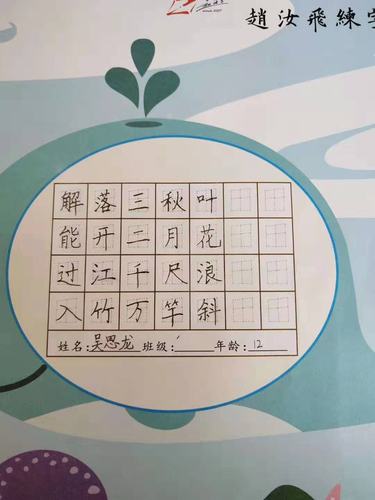 趙汝飛練字
解落三秋叶
能开二月花
过江千尺浪
入竹万竿斜
姓名:吴思龙 班级: 年龄:12